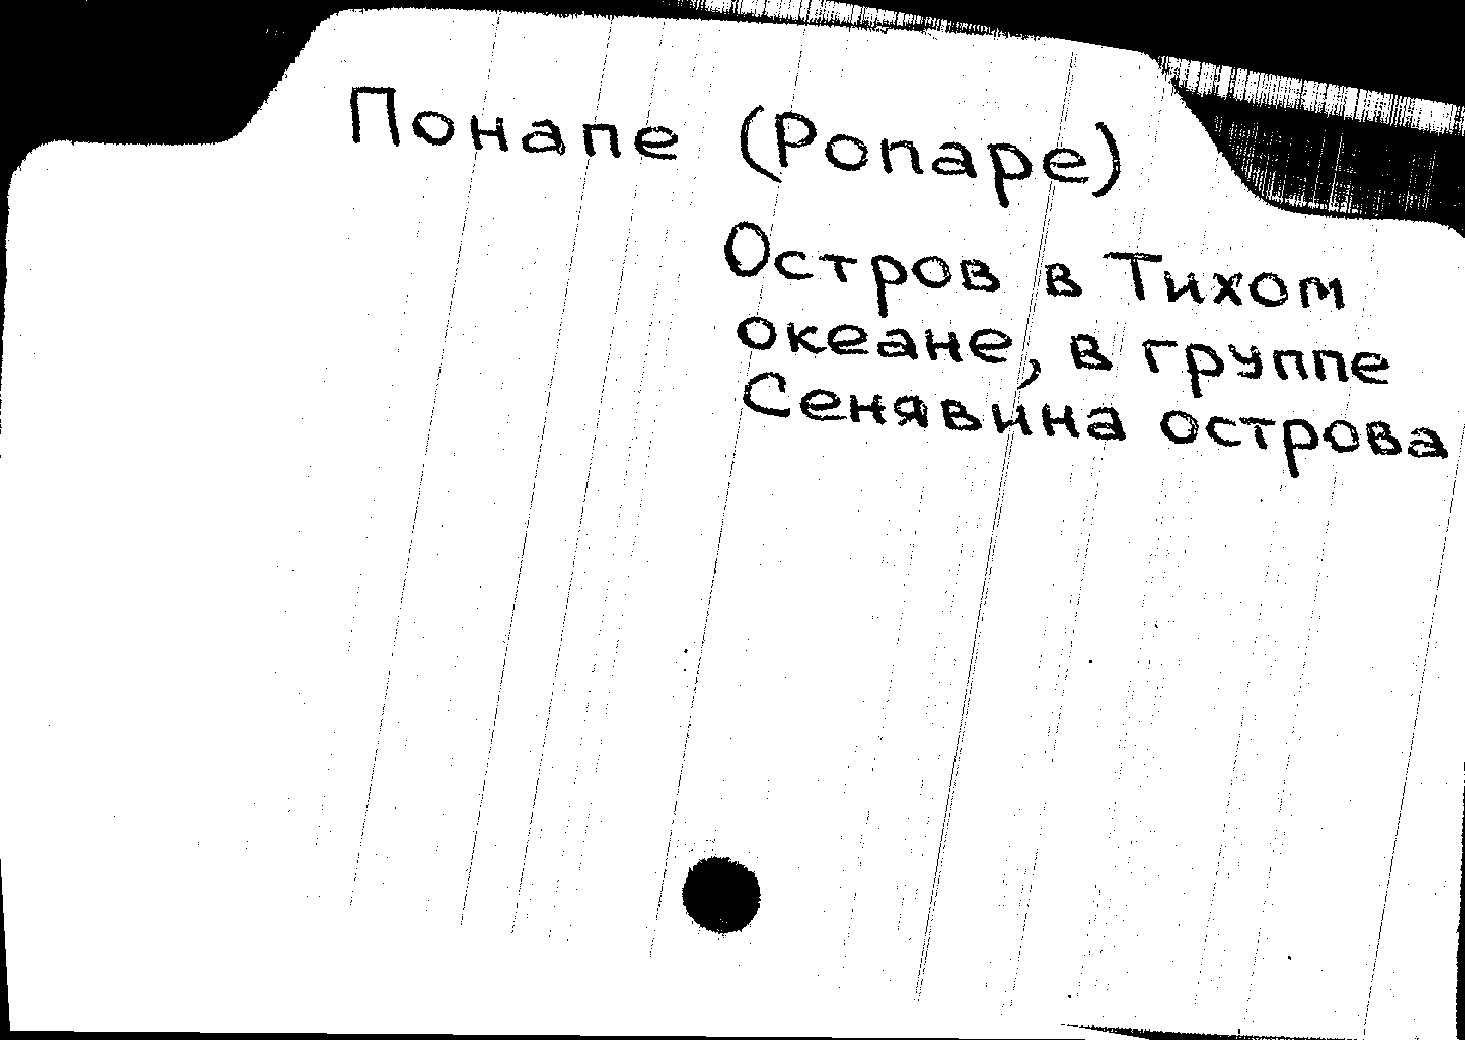 Понапе (Ponape)
Остров в Тихом
океане, в группе
Сенявина острова